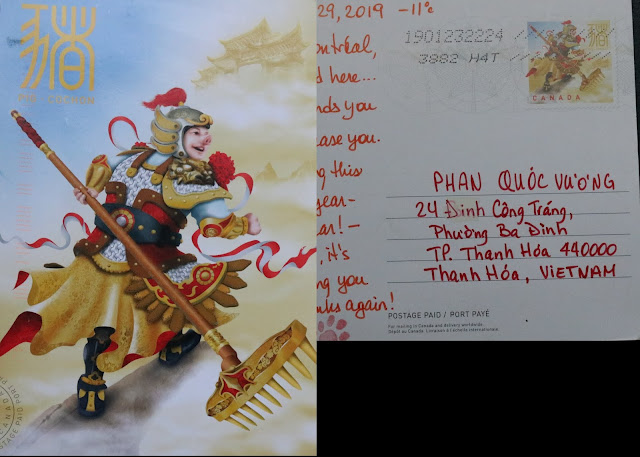 豬
29, 2019 -11°c
ontréal,
d here...
nds you
ease you.
ng this
year-
ar! -
, it's
ng you
nks again!
1901232224
3882 H4T
豬
CANADA
PHAN QUỐC VƯƠNG
24 Đinh Công Tráng,
Phường Ba Đình
TP. Thanh Hóa 440000
Thanh Hóa, VIETNAM
POSTAGE PAID / PORT PAYÉ
For mailing in Canada and delivery worldwide.
Dépôt au Canada. Livraison à l'échelle internationale.